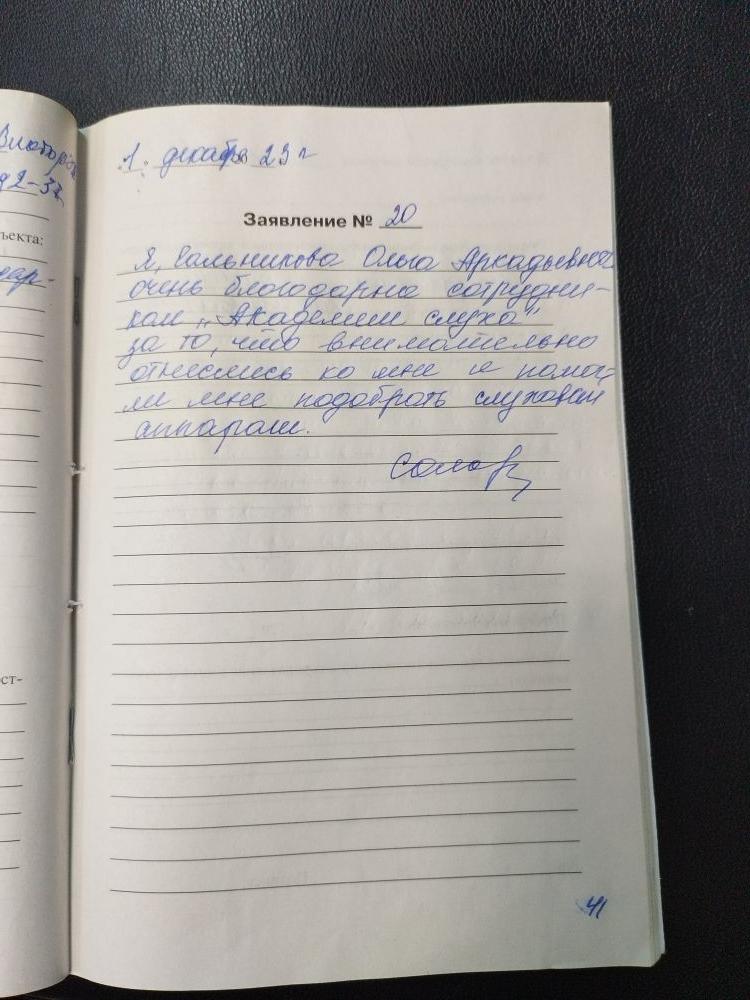 1. декабря 23 г
Заявление № 20
Я, Сальникова Ольга Аркадьевна
очень благодарна сотрудни-
кам „Академии слуха"
за то, что внимательно
отнеслись ко мне и помог-
ли мне подобрать слуховой
аппарат.
ъекта:
ст-
41